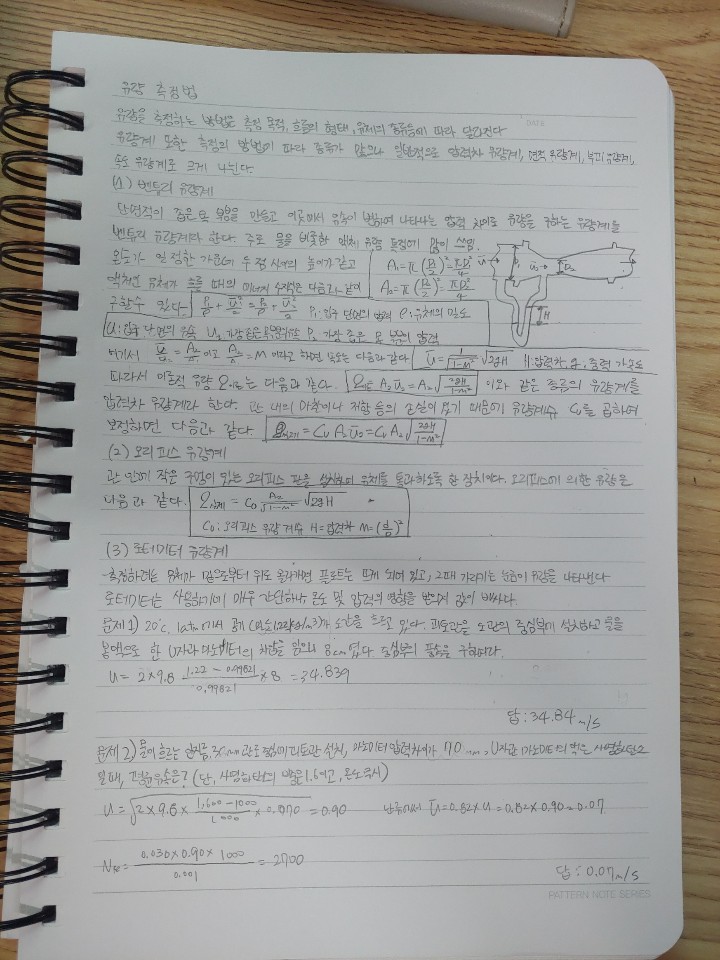 유량 측정법
DATE
유량을 측정하는 방법은 측정 목적, 흐름의 형태, 유체의 종류등에 따라 달라진다
유량계 또한 측정의 방법에 따라 종류가 많으나 일반적으로 압력차 유량계, 면적 유량계, 유량계,
속도 유량계로 크게 나뉜다.
(1) 벤투리 유량계
단면적이 좁은 목 부분을 만들고 이곳에서 유속이 변하여 나타나는 압력 차이로 유량을 구하는 유량계를
벤투리 유량계라 한다. 주로 물을 비롯한 액체 유량 측정에 많이 쓰임.
온도가 일정한 가운데 두 점 사이의 높이가 같고 A₁=π(D₁/2)²=πD₁²/4
액체인 유체가 흐를 때의 에너지 수책은 다음과 같이 A₂=π(D₂/2)²=πD₂²/4
구할수 있다 P₁/ρ + ū₁²/2 = P₂/ρ + ū₂²/2 P₁:입구 단면의 압력 ρ:유체의 밀도
U₁:입구 단면의 유속 U₂ 가장 좁은 유속 P₂ 가장 좁은 목 부분의 압력
여기서 = 이고 = m 이라고 하면 다음과 같다 ū=1/√1-m² √2gH H:압력차, g:중력 가속도
따라서 이론적 유량 Q이론는 다음과 같다. Q이론= A₂ū₂=A₂√2gH/1-m² 이와 같은 종류의 유량계를
압력차 유량계라 한다. 관 내의 마찰이나 저항 등의 손실이 있기 때문에 유량계수 Cv를 곱하여
보정하면 다음과 같다. Q실제=CvA₂ū₂=CvA₂√2gH/1-m²
(2) 오리피스 유량계
관 안에 작은 구멍이 있는 오리피스 판을 설치하여 유체를 통과하도록 한 장치이다. 오리피스에 의한 유량은
다음과 같다. Q실제=C₀ A₀/√1-m² √2gH
C₀:오리피스 유량 계수 H=압력차
(3) 로터미터 유량계
측정하려는 유체가 밑으로부터 위로 올라가면 플로트는 뜨게 되어 있고, 그때 가리키는 눈금이 유량을 나타낸다
로터미터는 사용하기에 매우 간단하나 온도 및 압력의 영향을 받으며 값이 비싸다.
문제 1) 20℃, 1atm에서 공기 도관을 흐르고 있다. 피토관을 도관의 중심부에 설치하고 물을
봉액으로 한 U자관 마노미터의 차압을 읽으니 8cm 였다. 중심부의 풍속을 구하여라.
U = 2×9.8 1.22 - 0.99821/0.99821 ×8 =34.839
답:34.84m/s
문제 2) 물이 흐르는 피토관 설치, 마노미터 압력차이가 70 mm, U자관 마노미터의 액은 사염화탄소
일때, 평균유속은? (단, 사염화탄소의 비중은 1.6이고, 온도
U=√2×9.8×1,600-1000/1000×0.070 =0.90 ū=0.82×u=0.82×0.90=0.07
NRe=0.030×0.90×1000/0.001=2700
답:0.07m/s
PATTERN NOTE SERIES